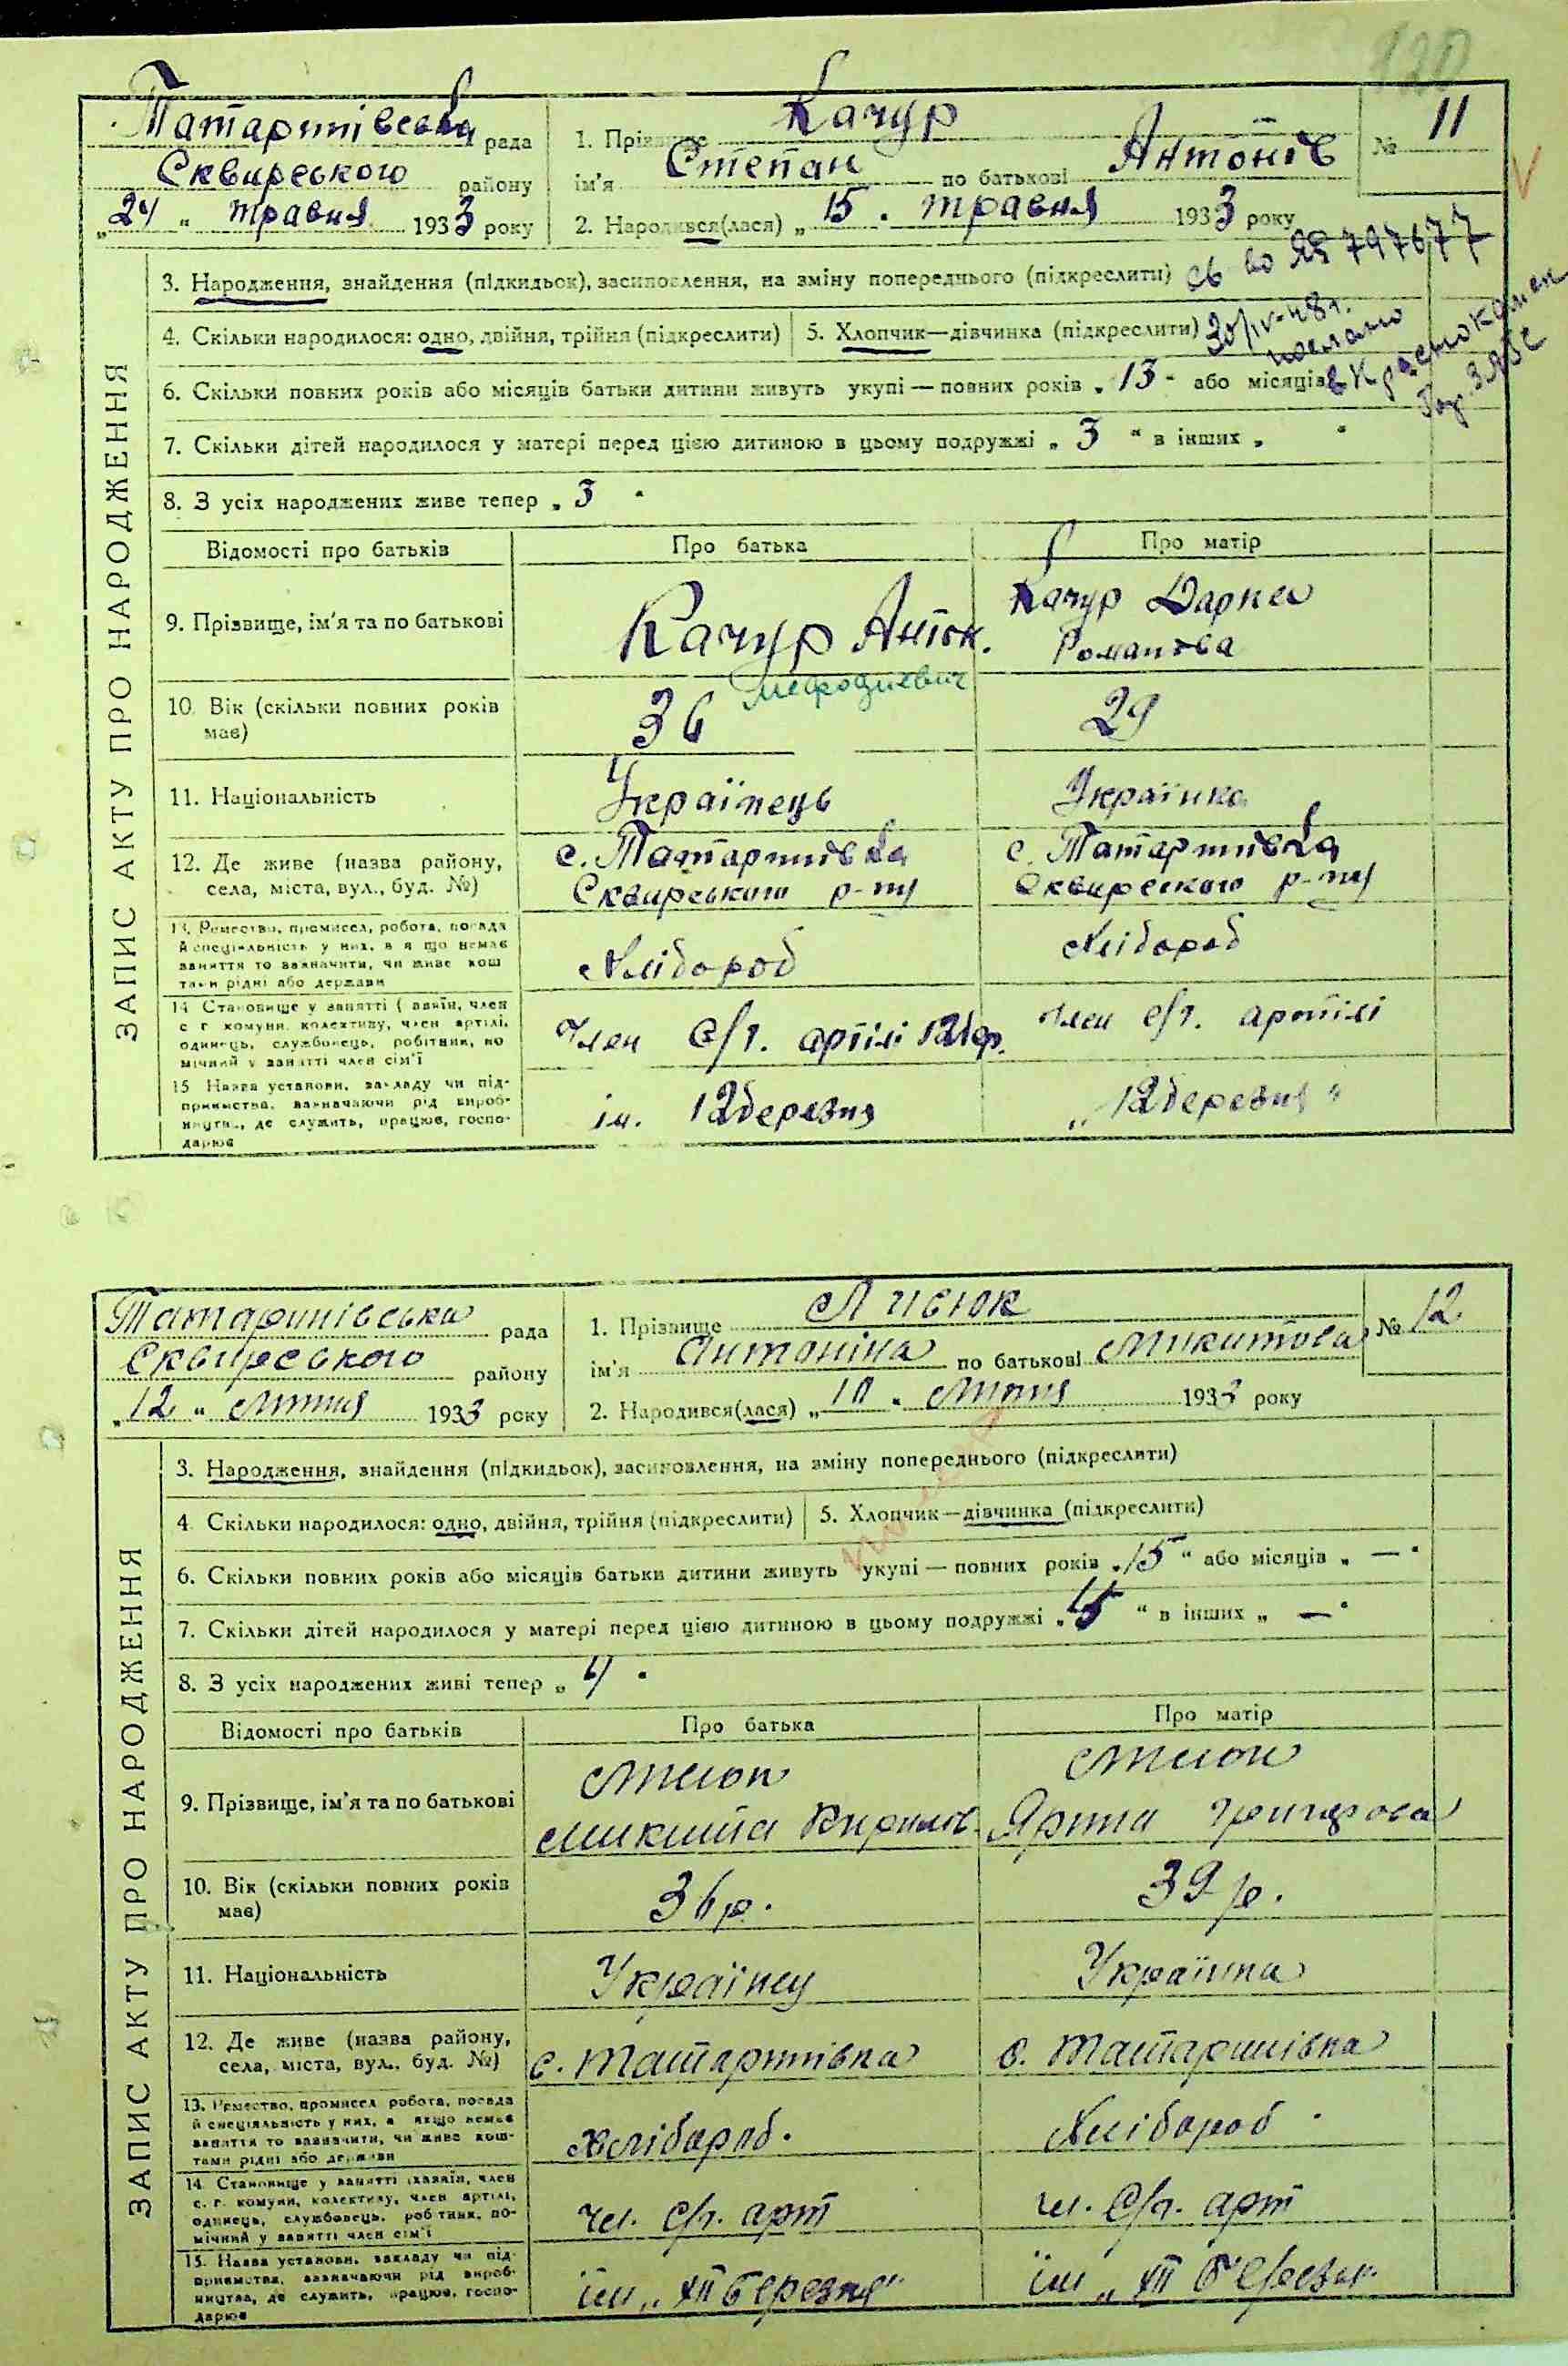 120
Татаринівська рада
Сквирського району
„24“ травня 1933 року
1. Прізвище Качур
ім'я Степан по батькові Антонів
№ 11
2. Народився(лася) „15„ травня 1933 року
ЗАПИС АКТУ ПРО НАРОДЖЕННЯ
3. Народження, знайдення (підкидьок), засиновлення, на зміну попереднього (підкреслити)
св во ЯБ 797677
30/IV-48 г.
послано
в Краснокамен
Гор. ЗАГС
4. Скільки народилося: одно, двійня, трійня (підкреслити) 5. Хлопчик—дівчинка (підкреслити)
6. Скільки повних років або місяців батьки дитини живуть укупі — повних років „13“ або місяців
7. Скільки дітей народилося у матері перед цією дитиною в цьому подружжі „3“ в інших „ “
8. З усіх народжених живе тепер „3“
Відомості про батьків Про батька Про матір
9. Прізвище, ім'я та по батькові
Качур Антон.
мефодиевич
Качур Дарка
Романова
10. Вік (скільки повних років має) 36 29
11. Національність Українець Українка
12. Де живе (назва району, села, міста, вул., буд. №)
с. Татаринівка
Сквирського р-ну
с. Татаринівка
Сквирского р-ну
13. Ремество, промисел, робота, посада
й спеціяльність у них, а якщо немає
заняття то зазначити, чи живе кош
тами рідні або держави
Хлібороб Хлібороб
14. Становище у занятті (хазяїн, член
с. г. комуни, колективу, член артілі,
одинець, службовець, робітник, по
мічний у занятті член сім'ї
Член С/г. артілі 12 бер. Член С/г. артілі
15. Назва установи, закладу чи під-
приємства, зазначаючи рід вироб-
ництва, де служить, працює, госпо-
дарює
ім. 12 березня „12 березня“
Татаринівська рада
Сквирського району
„12“ липня 1933 року
1. Прізвище Лисюк
ім'я Антоніна по батькові Микитова
№ 12
2. Народився(лася) „10„ 1933 року
ЗАПИС АКТУ ПРО НАРОДЖЕННЯ
3. Народження, знайдення (підкидьок), засиновлення, на зміну попереднього (підкреслити)
4. Скільки народилося: одно, двійня, трійня (підкреслити) 5. Хлопчик—дівчинка (підкреслити)
6. Скільки повних років або місяців батьки дитини живуть укупі — повних років „15“ або місяців „ — “
7. Скільки дітей народилося у матері перед цією дитиною в цьому подружжі „5“ в інших „ — “
8. З усіх народжених живі тепер „4“
Відомості про батьків Про батька Про матір
9. Прізвище, ім'я та по батькові
Лисюк
Микита Кирилов.
Лисюк
Ярина Григорова
10. Вік (скільки повних років має) 36 р. 39 р.
11. Національність Українец Українка
12. Де живе (назва району, села, міста, вул., буд. №)
с. Татаринівка с. Татаринівка
13. Ремество, промисел робота, посада
й спеціяльність у них, а якщо немає
заняття то зазначити, чи живе кош-
тами рідні або держави
хлібороб. Хлібороб
14. Становище у занятті (хазяїн, член
с. г. комуни, колективу, член артілі,
одинець, службовець, робітник, по-
мічний у занятті член сім'ї
чл. С/г. арт чл. С/г. арт
15. Назва установи, закладу чи під-
приємства, зазначаючи рід вироб-
ництва, де служить, працює, госпо-
дарює
ім „XII березня“ ім „XII березн.